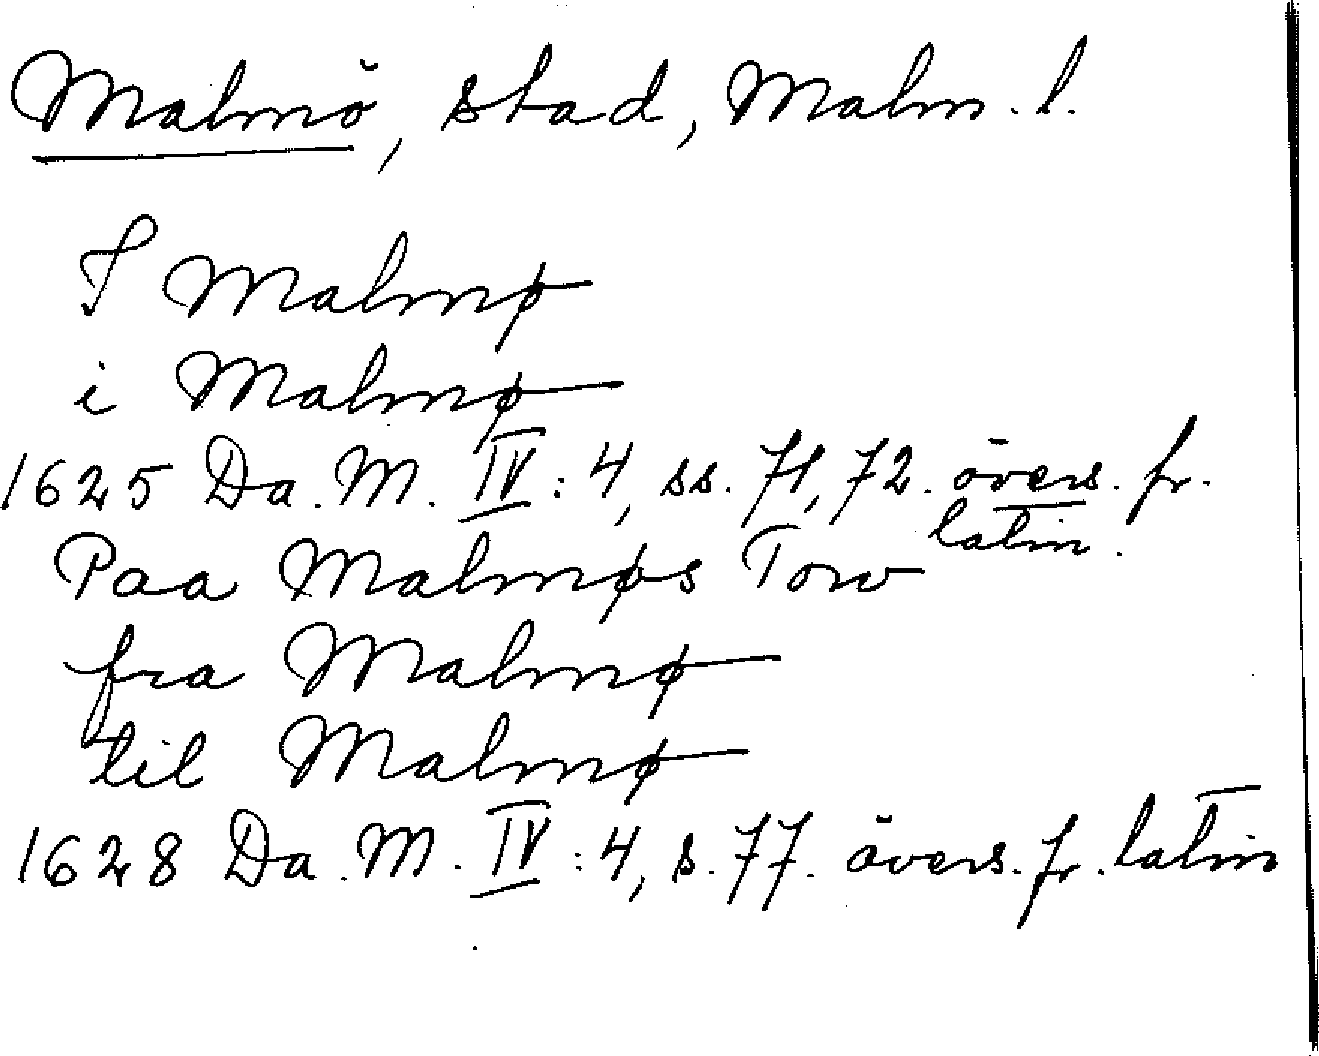 Malmö, stad, Malm. l.
I Malmø
i Malmø
1625 Da. M. IV: 4, ss. 71, 72. övers. fr.
latin.
Paa Malmøs Torv
fra Malmø
til Malmø
1628 Da. M. IV: 4, s. 77. övers. fr. latin